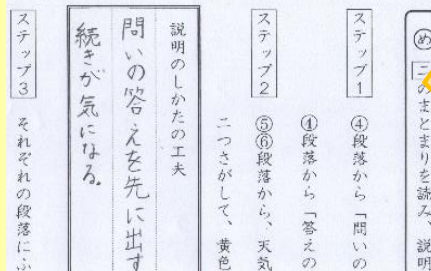 め
二のまとまりを読み、説明
ステップ1
④段落から「問いの
④段落から「答えの
ステップ2
⑤⑥段落から、天気
二つさがして、黄色
説明のしかたの工夫
問いの答えを先に出す
続きが気になる。
ステップ3
それぞれの段落にふ